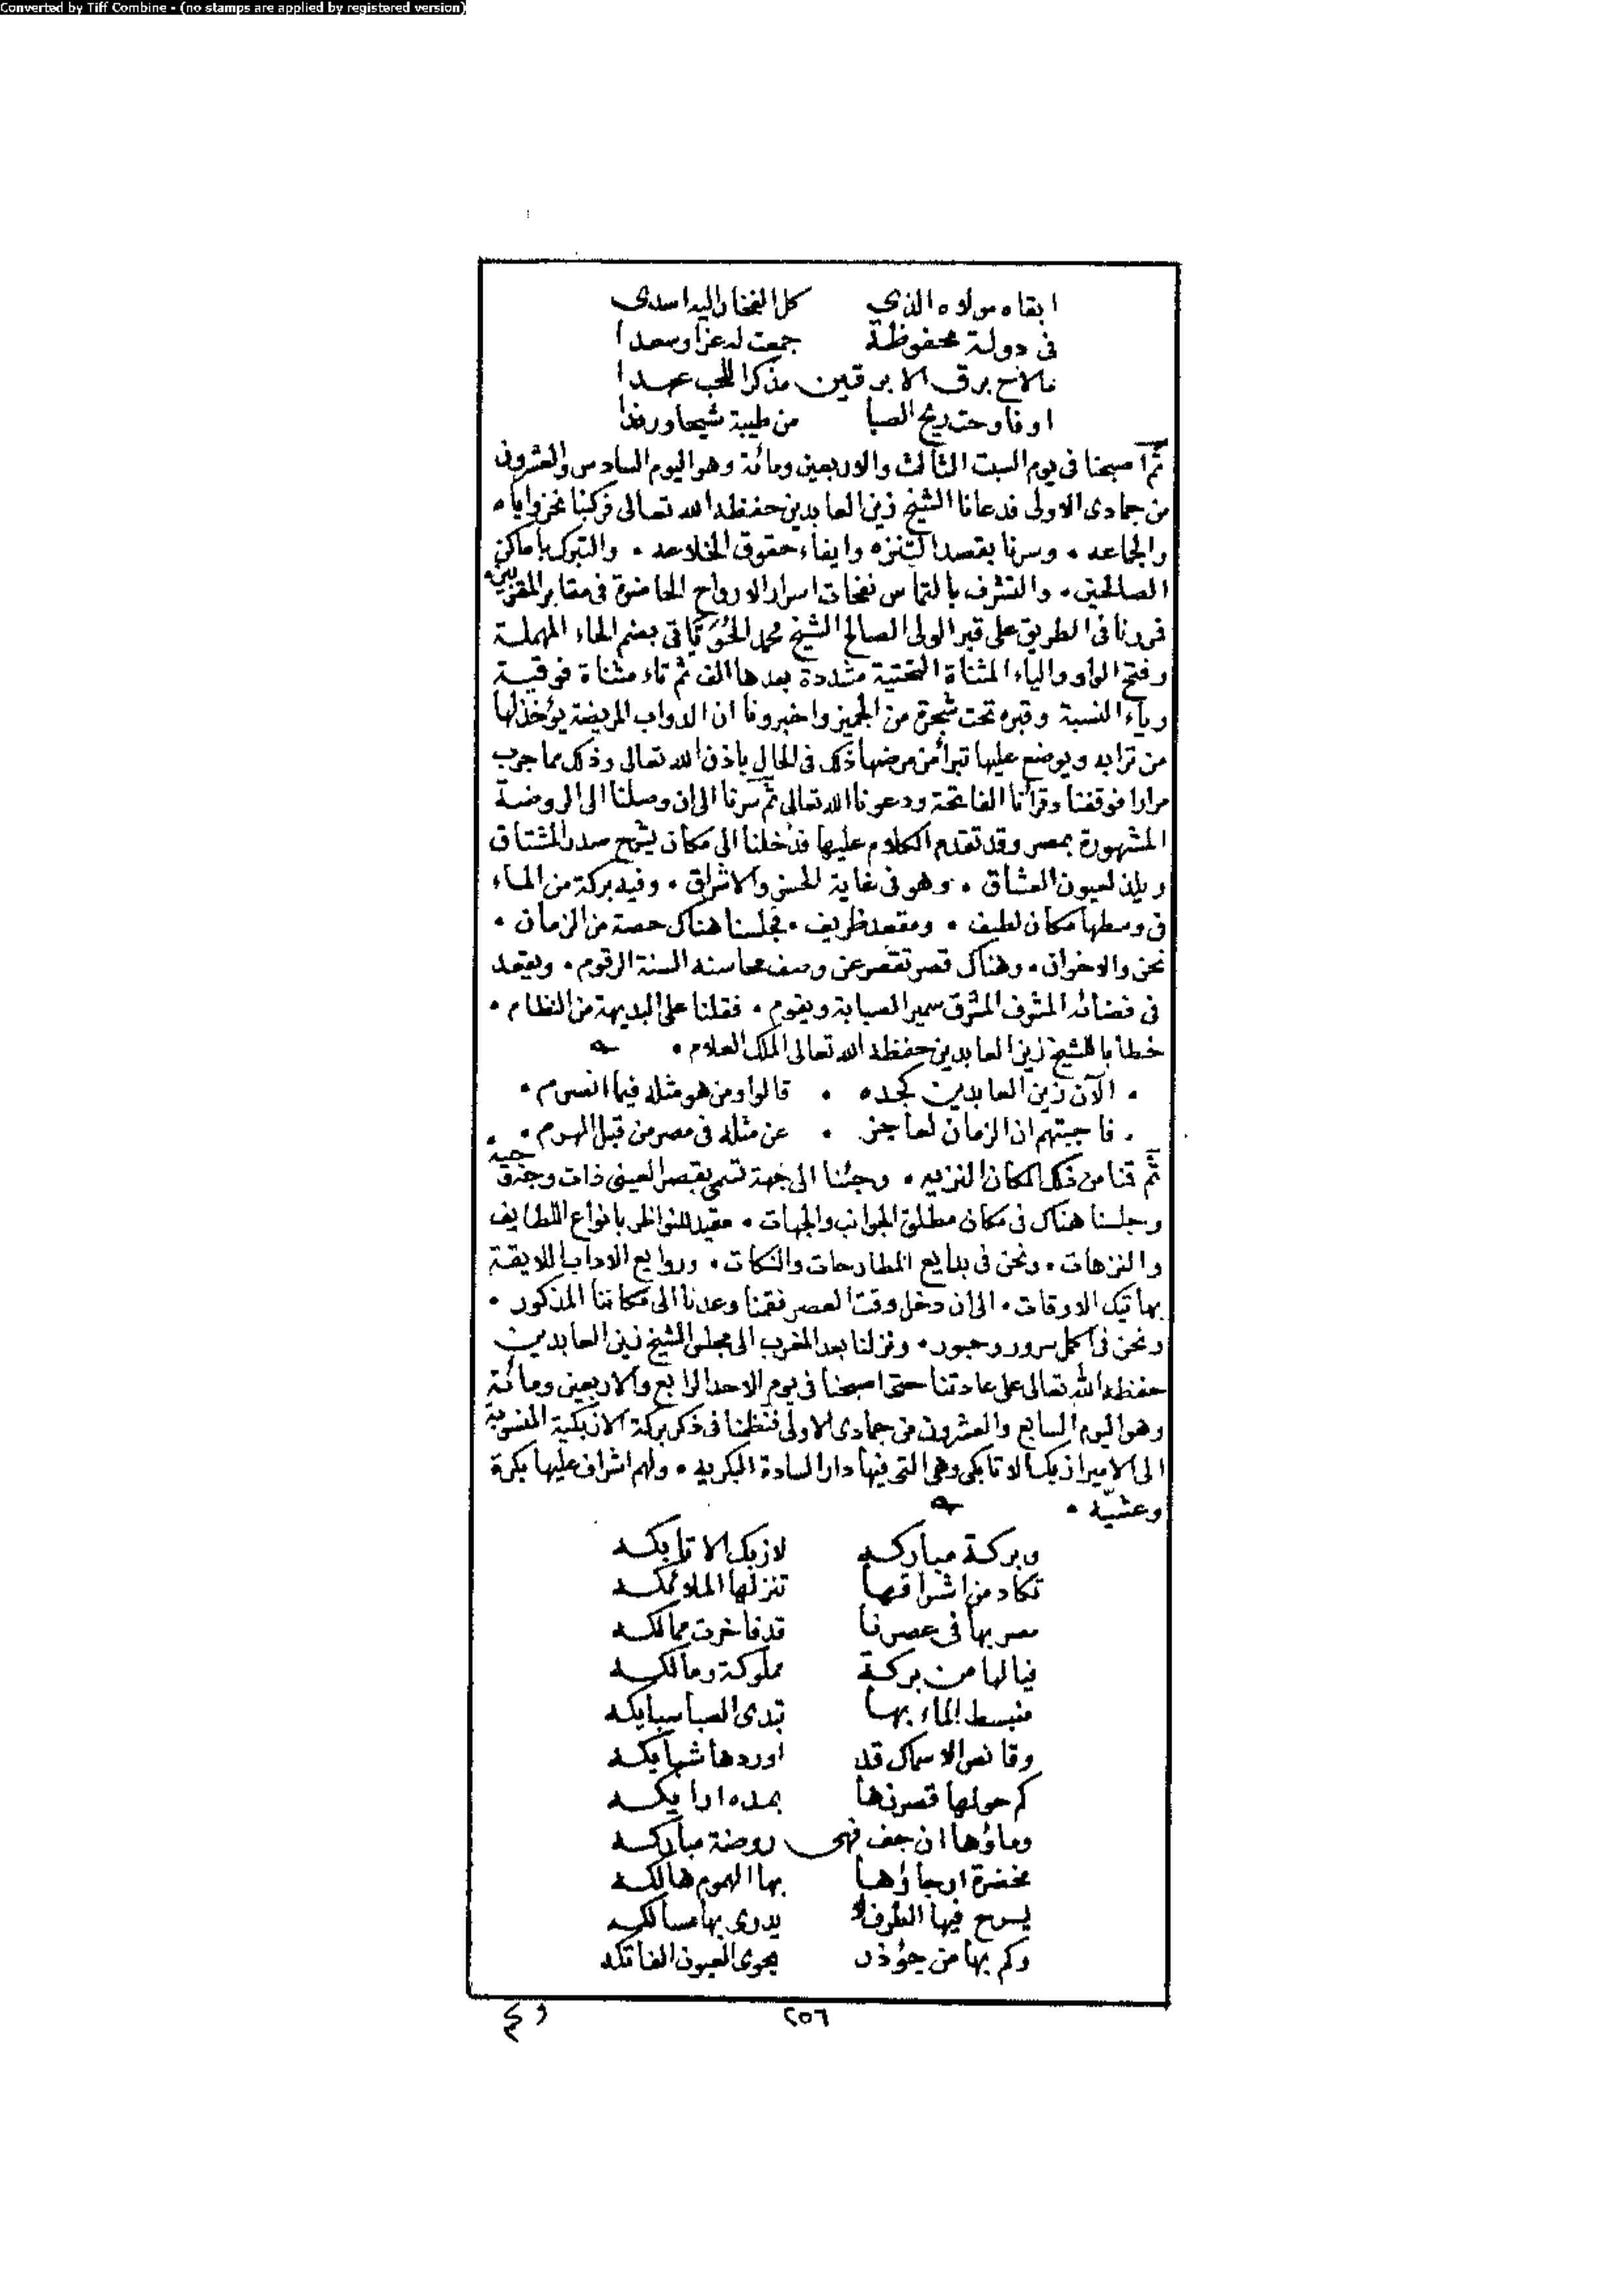 Converted by Tiff Combine - (no stamps are applied by registered version)
ابقاه مولاه الذي كل الفخار اليه اسدى
فى دولة محفوظة جمعت له عزا وسعدا
مالاح برق الابرقين مذكرا للحب عهدا
اوفاوحت ريح الصبا من طيبة شيحا ورندا
ثم اصبحنا فى يوم السبت الثالث والاربعين ومائة وهو اليوم السادس والعشرون
من جمادى الاولى فدعانا الشيخ زين العابدين حفظه الله تعالى فركبنا نحن واياه
والجماعه • وسرنا بقصد التنزه وايفاء حقوق الخلاعه • والتبرك باماكن
الصالحين • والتشرف بالتماس نفحات اسرار الارواح الحاضرة فى مقابر المقربين •
فمررنا فى الطريق على قبر الولى الصالح الشيخ محمد الحُوَيَّاتى بضم الحاء المهملة
وفتح الواو والياء المثناة التحتية مشددة بعدها الف ثم تاء مثناة فوقية
وياء النسبة وقبره تحت شجرة من الجميز واخبرونا ان الدواب المريضة يؤخذ لها
من ترابه ويوضع عليها تبرأ من مرضها ذلك فى الحال باذن الله تعالى وذلك مما جرب
مرارا فوقفنا وقرأنا الفاتحة ودعونا الله تعالى ثم سرنا الى ان وصلنا الى الروضة
المشهورة بمصر وقد تقدم الكلام عليها فدخلنا الى مكان يشرح صدر المشتاق
ويلذ لعيون العشاق • وهو فى غاية الحسن والاشراق • وفيه بركة من الماء
فى وسطها مكان لطيف • ومقعد ظريف • فجلسنا هناك حصة من الزمان •
نحن والاخوان • وهناك قصر تقصر عن وصف محاسنه السنة الرقوم • ويقعد
فى فضائه المشرف المشرق سمير الصبابة ويقوم • فقلنا على البديهة من النظام •
خطابا للشيخ زين العابدين حفظه الله تعالى الملك العلام •
• الآن زين العابدين كجده • قالوا ومن هو مثله فيما انسوم •
• فاجبتهم ان الزمان لعاجز • عن مثله فى مصر من قبل الهرم •
ثم قمنا من ذلك المكان النزيه • وجئنا الى جهة تسمى بقصر العينى ذات وجيه
وجلسنا هناك فى مكان مطلق الجوانب والجهات • مقيد للنواظر بانواع اللطايف
والنزهات • ونحن فى بدايع المطارحات والنكات • وروايع الاداب اللايقة
بهاتيك الاوقات • الى ان دخل وقت العصر فقمنا وعدنا الى مكاننا المذكور •
ونحن فى اكمل سرور وحبور • ونزلنا بعد المغرب الى مجلس الشيخ زين العابدين
حفظه الله تعالى على عادتنا حتى اصبحنا فى يوم الاحد الرابع والاربعين ومائة
وهو اليوم السابع والعشرون من جمادى الاولى فنظمنا فى ذكر بركة الازبكية المنسوبة
الى الامير ازبك الاتابكى وهى التى فيها دار السادة البكريه • ولهم اشراف عليها بكرة
وعشيّه •
وبركة مباركه لازبك الاتابكه
تكاد من اشراقها تنزلها الملائكه
مصر بها فى عصرنا قد فاخرت ممالكه
فيالها من بركة مملوكة ومالكه
منبسط الماء بها تبدى الصبا سبايكه
وقانص الاسماك قد اوردها شبايكه
كم حولها قصر زها بمده ارايكه
وماؤها ان جف فهى روضة مباركه
مخضرة ارجاؤها بها الهموم هالكه
يسرح فيها الطرف لا يدرى بها مسالكه
وكم بها من جؤذر يحوى العيون الفاتكه
٢٥٦
وكم